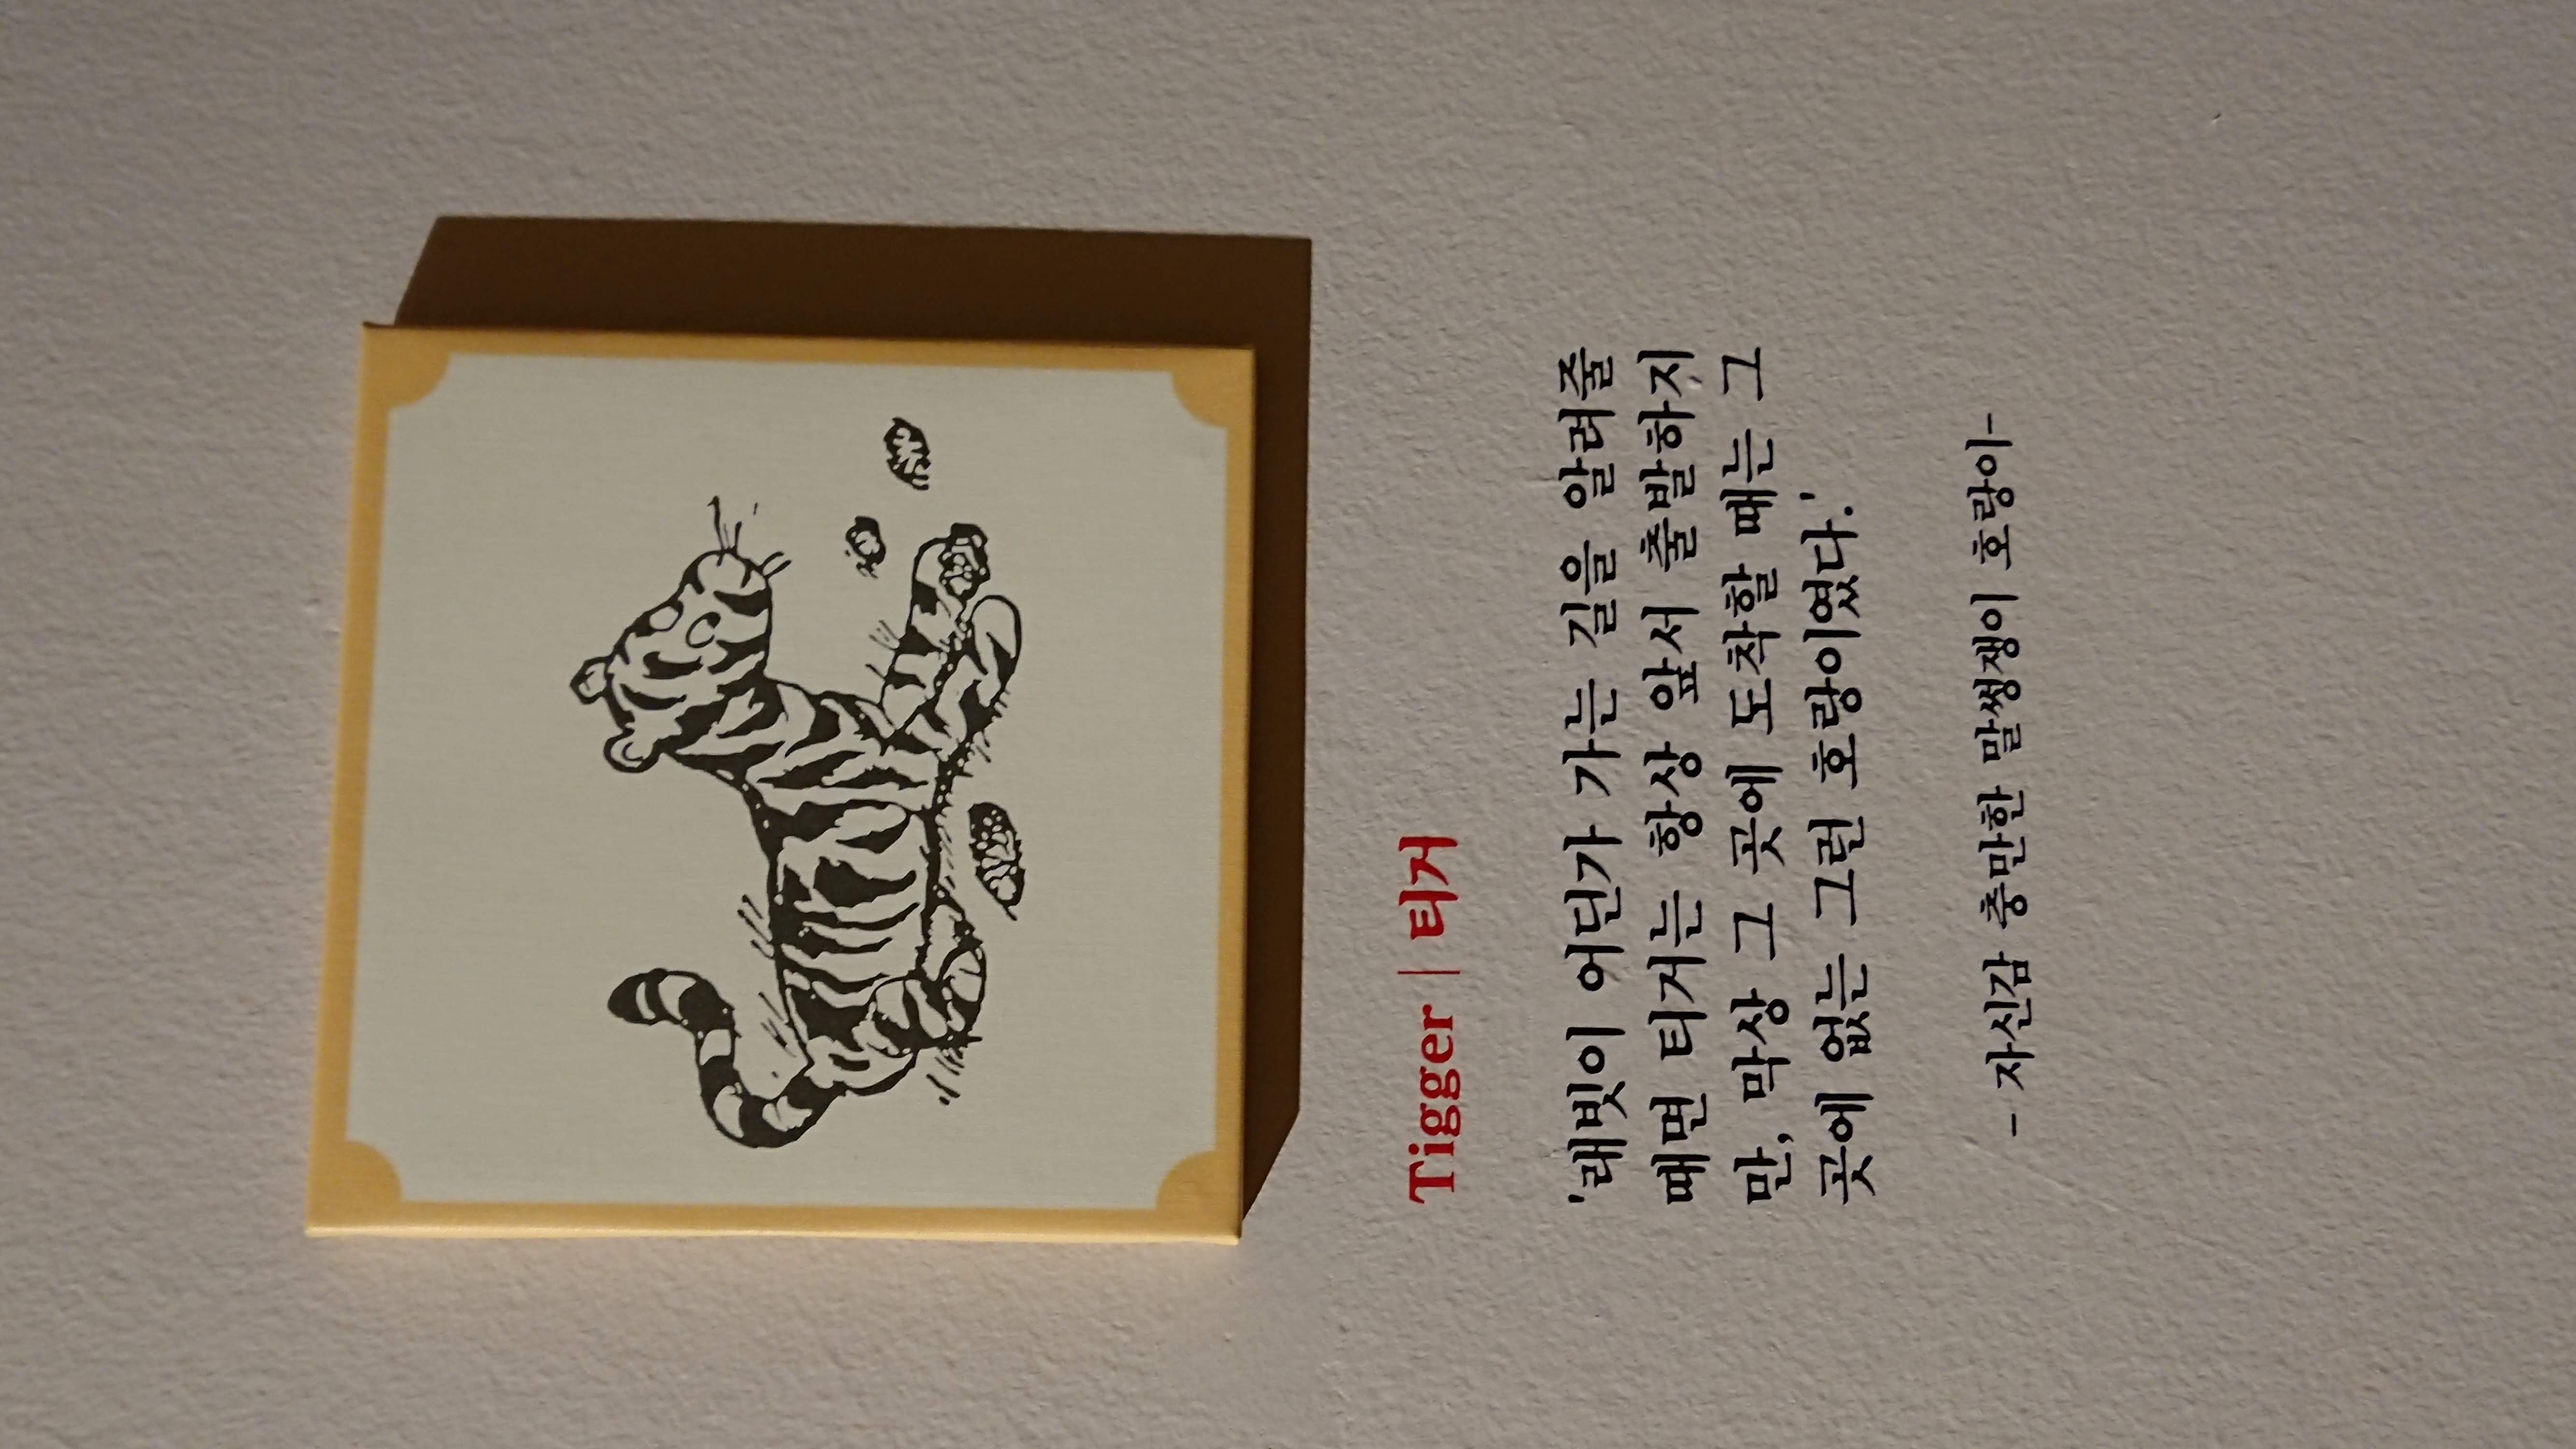 Tigger | 티거
'래빗이 어딘가 가는 길을 알려줄
때면 티거는 항상 앞서 출발하지
만, 막상 그 곳에 도착할 때는 그
곳에 없는 그런 호랑이였다.'
- 자신감 충만한 말썽쟁이 호랑이-